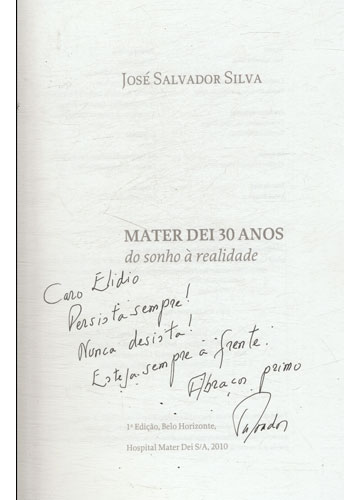 JOSÉ SALVADOR SILVA
MATER DEI 30 ANOS
do sonho à realidade
Caro Elidio
Persista sempre!
Nunca desista!
Esteja sempre a frente.
Abraços primo
1ª Edição, Belo Horizonte,
Hospital Mater Dei S/A, 2010